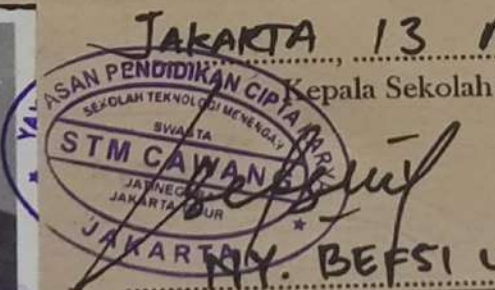 JAKARTA, 13
Kepala Sekolah
YASAN PENDIDIKAN CIPTA KARYA
SEKOLAH TEKNOLOGI MENENGAH
SWASTA
STM CAWANG
JATINEGARA
JAKARTA TIMUR
JAKARTA
NY. BEFSI